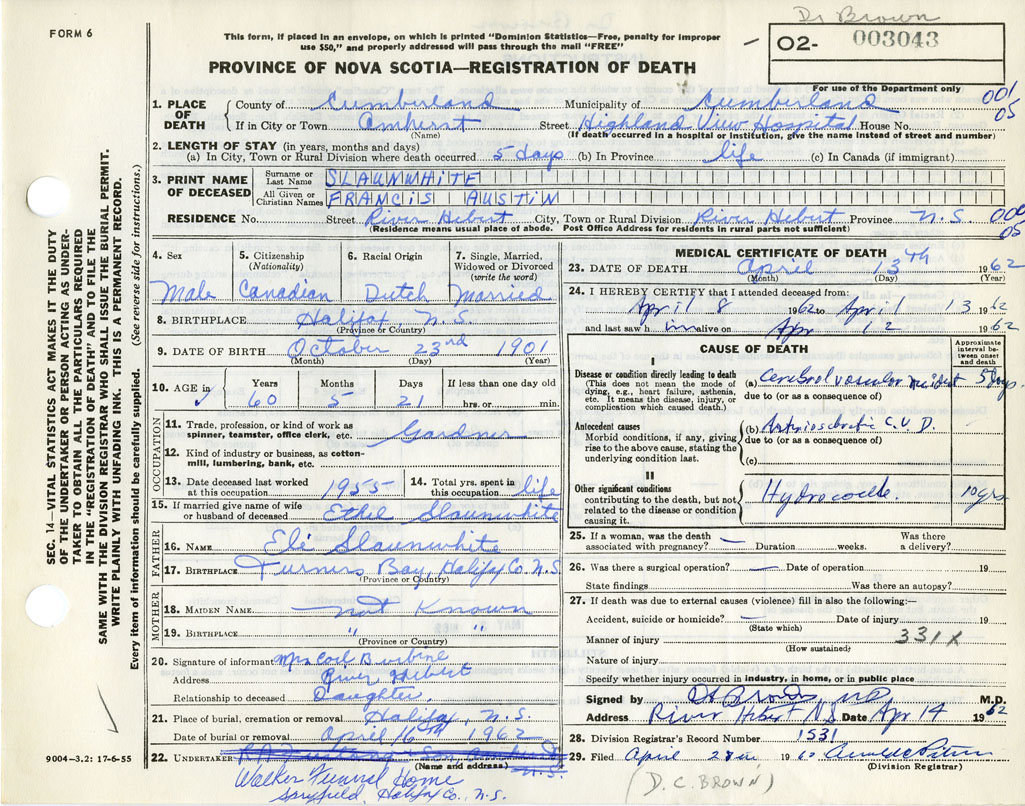 Dr Brown
FORM 6
This form, if placed in an envelope, on which is printed "Dominion Statistics—Free, penalty for improper
use $50," and properly addressed will pass through the mail "FREE"
02- 003043
PROVINCE OF NOVA SCOTIA—REGISTRATION OF DEATH
For use of the Department only
001
05
1. PLACE OF DEATH
County of Cumberland Municipality of Cumberland
If in City or Town Amherst Street Highland View Hospital House No.
(Name) (If death occurred in a hospital or institution, give the name instead of street and number)
2. LENGTH OF STAY (in years, months and days)
(a) In City, Town or Rural Division where death occurred 5 days (b) In Province life (c) In Canada (if immigrant)
3. PRINT NAME OF DECEASED
Surname or Last Name SLAUNWHITE
All Given or Christian Names FRANCIS AUSTIN
RESIDENCE No. Street River Hebert City, Town or Rural Division River Hebert Province N.S.
(Residence means usual place of abode. Post Office Address for residents in rural parts not sufficient)
05
4. Sex
Male
5. Citizenship (Nationality)
Canadian
6. Racial Origin
Dutch
7. Single, Married, Widowed or Divorced (write the word)
Married
8. BIRTHPLACE Halifax, N.S.
(Province or Country)
9. DATE OF BIRTH October 23rd 1901
(Month) (Day) (Year)
10. AGE in
Years Months Days If less than one day old
60 5 21 hrs. or min.
OCCUPATION
11. Trade, profession, or kind of work as spinner, teamster, office clerk, etc. Gardner
12. Kind of industry or business, as cotton-mill, lumbering, bank, etc.
13. Date deceased last worked at this occupation 1955
14. Total yrs. spent in this occupation life
15. If married give name of wife or husband of deceased Ethel Slaunwhite
FATHER
16. NAME Eli Slaunwhite
17. BIRTHPLACE Turners Bay, Halifax Co. N.S.
(Province or Country)
MOTHER
18. MAIDEN NAME not Known
19. BIRTHPLACE " "
(Province or Country)
20. Signature of informant Mrs Cecil Burbine
Address River Hebert
Relationship to deceased Daughter.
21. Place of burial, cremation or removal Halifax, N.S.
Date of burial or removal April 16th 1962
22. UNDERTAKER
(Name and address) N.S.
Walker Funeral Home
Spryfield, Halifax Co., N.S.
9004—3.2: 17-6-55
SEC. 14.—VITAL STATISTICS ACT MAKES IT THE DUTY
OF THE UNDERTAKER OR PERSON ACTING AS UNDER-
TAKER TO OBTAIN ALL THE PARTICULARS REQUIRED
IN THE "REGISTRATION OF DEATH" AND TO FILE THE
SAME WITH THE DIVISION REGISTRAR WHO SHALL ISSUE THE BURIAL PERMIT.
WRITE PLAINLY WITH UNFADING INK. THIS IS A PERMANENT RECORD.
Every item of information should be carefully supplied. (See reverse side for instructions.)
MEDICAL CERTIFICATE OF DEATH
23. DATE OF DEATH April 13th 1962
(Month) (Day) (Year)
24. I HEREBY CERTIFY that I attended deceased from:
April 8 1962 to April 13 1962
and last saw him alive on Apr 12 1962
CAUSE OF DEATH
Approximate interval between onset and death
I
Disease or condition directly leading to death
(This does not mean the mode of dying, e.g., heart failure, asthenia, etc. It means the disease, injury, or complication which caused death.)
(a) Cerebral vascular accident 5 days
due to (or as a consequence of)
Antecedent causes
Morbid conditions, if any, giving rise to the above cause, stating the underlying condition last.
(b) Arteriosclerotic C.V.D.
due to (or as a consequence of)
(c)
II
Other significant conditions
contributing to the death, but not related to the disease or condition causing it.
Hydrocoele. 10 yrs
25. If a woman, was the death associated with pregnancy? Duration weeks. Was there a delivery?
26. Was there a surgical operation? Date of operation 19
State findings Was there an autopsy?
27. If death was due to external causes (violence) fill in also the following:—
Accident, suicide or homicide? Date of injury 19
(State which)
Manner of injury 331X
(How sustained)
Nature of injury
Specify whether injury occurred in industry, in home, or in public place
Signed by M.D.
Address River Hebert N.S. Date Apr 14 1962
28. Division Registrar's Record Number 1531
29. Filed April 1962
(Division Registrar)
(D. C. BROWN)